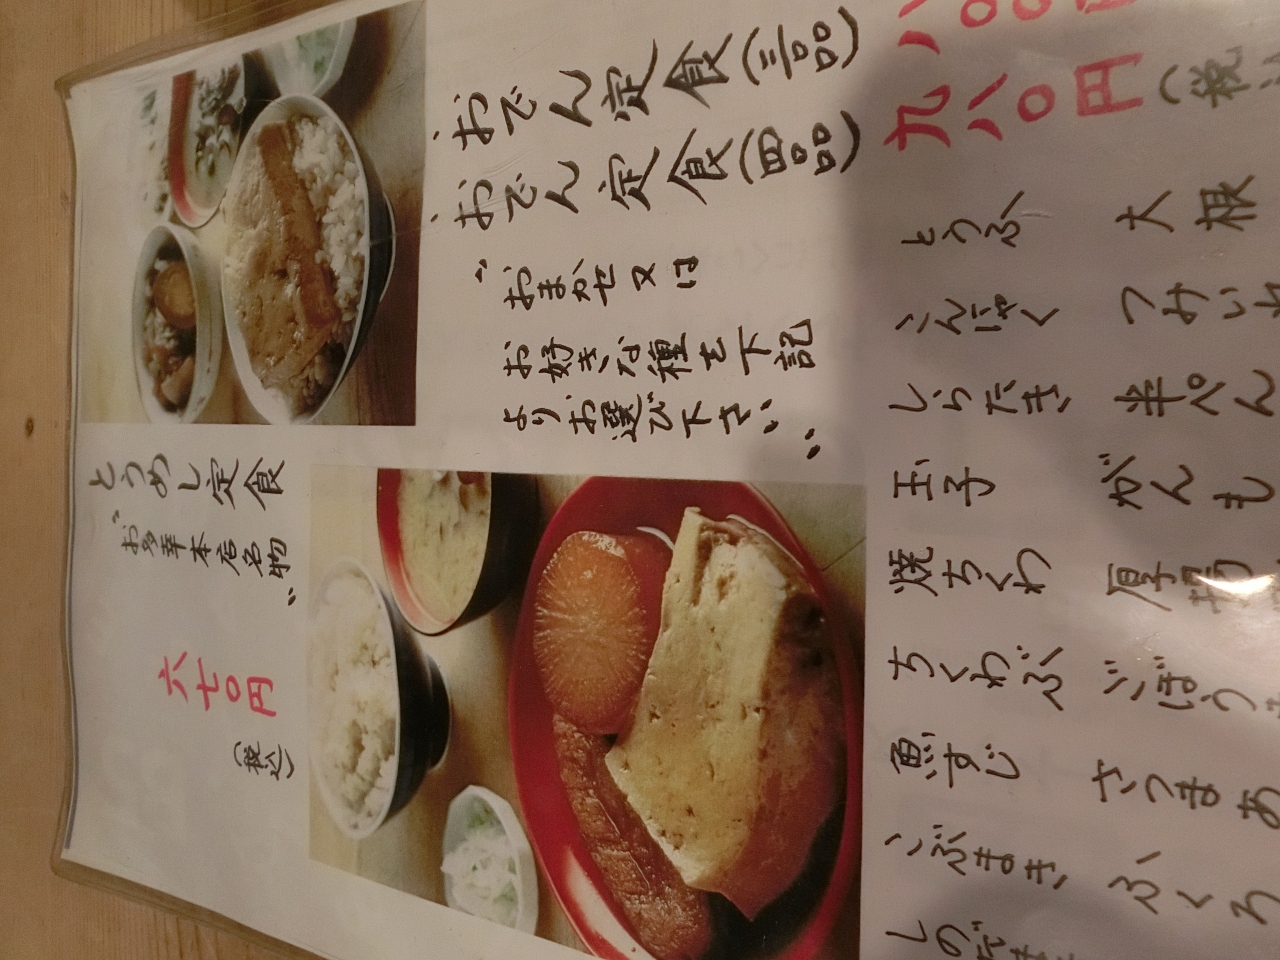 おでん定食(三品)
八〇〇
おでん定食(四品)
九八〇円(税
"おまかせ又は
お好きな種を下記
よりお選び下さい"
とうふ
大根
こんにゃく
つみいれ
しらたき
半ぺん
玉子
がんも
焼ちくわ
厚揚
ちくわぶ
ごぼう
魚すじ
さつまあ
こぶまき
ふくろ
しのだまき
とうめし定食
"お多幸本店名物"
六七〇円
(税込)